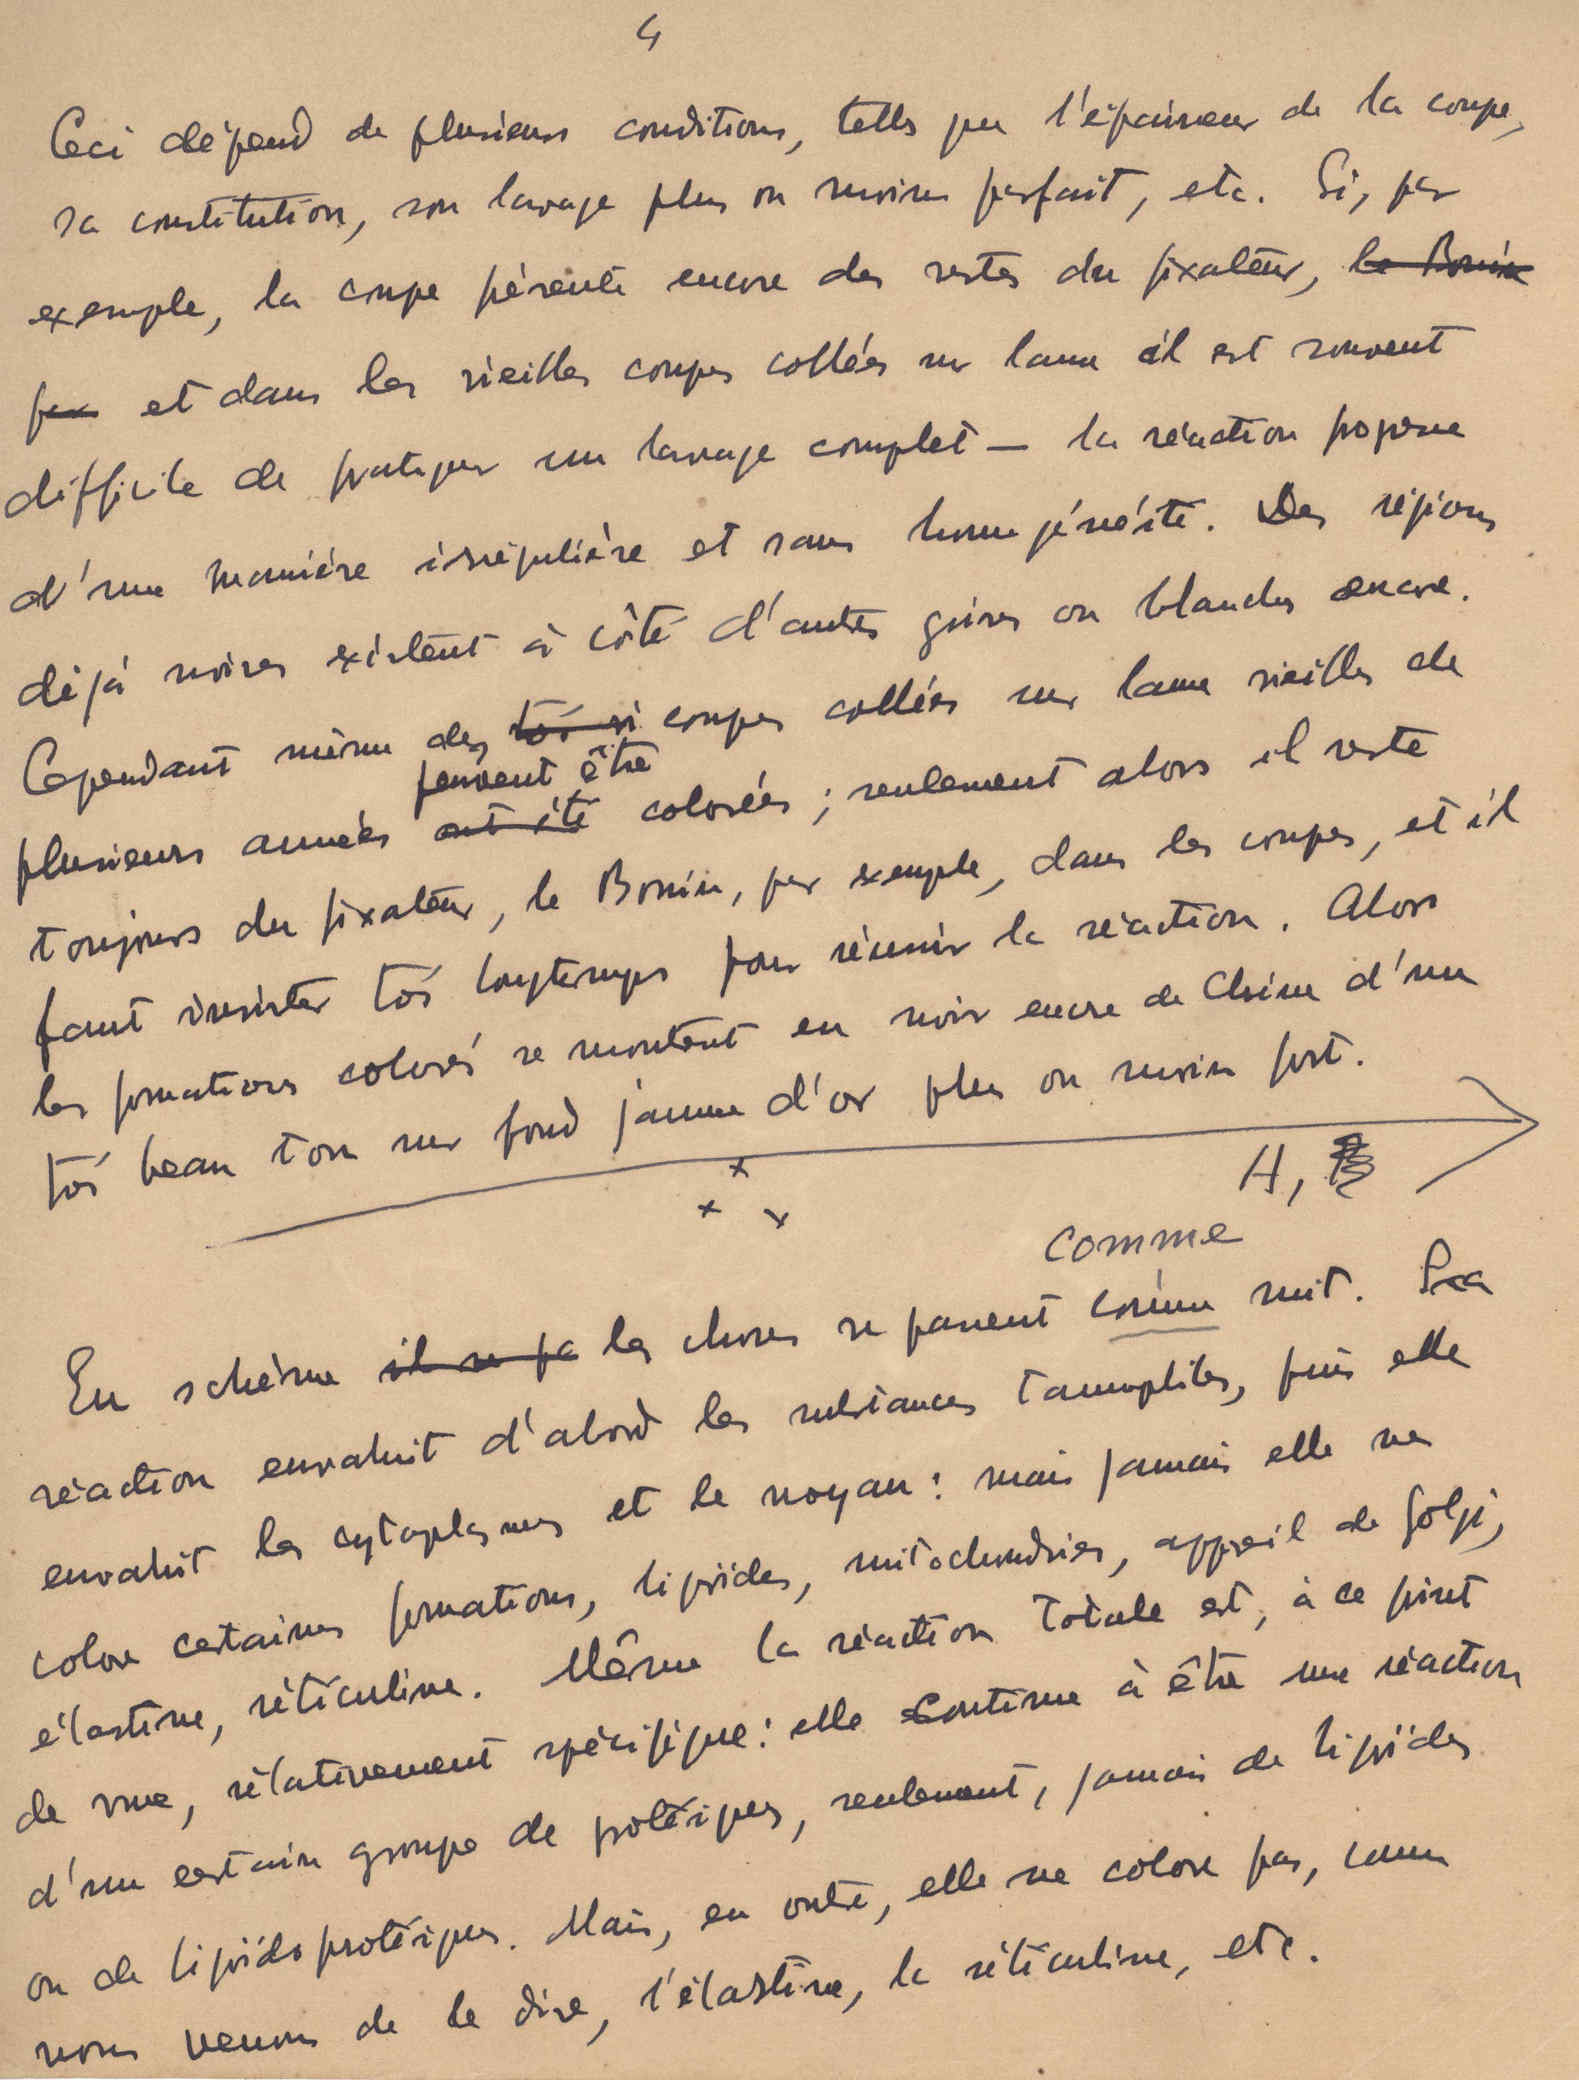 4
Ceci dépend de plusieurs conditions, telles que l'épaisseur de la coupe,
sa constitution, son lavage plus ou moins parfait, etc. Si, par
exemple, la coupe présente encore des restes du fixateur, le Bouin
par et dans les vieilles coupes collées sur lame il est souvent
difficile de pratiquer un lavage complet — la réaction progresse
d'une manière irrégulière et sans homogénéité. Des régions
déjà noires existent à côté d'autres grises ou blanches encore.
Cependant même des coupes collées sur lame vieilles de
peuvent être
plusieurs années ont été colorées ; seulement alors il reste
toujours du fixateur, le Bouin, par exemple, dans les coupes, et il
faut insister très longtemps pour réussir la réaction. Alors
les formations colorés se montent en noir encre de Chine d'un
très beau ton sur fond jaune d'or plus ou moins fort.
x
x x
H,
comme
En schème il se pa les choses se passent comme suit. La
réaction envahit d'abord les substances tannophiles, puis elle
envahit les cytoplasmes et le noyau : mais jamais elle ne
colore certaines formations, lipoïdes, mitochondries, appareil de Golgi,
élastine, réticuline. Même la réaction totale est, à ce point
de vue, rélativement spécifique : elle continue à être une réaction
d'un certain groupe de protéiques, seulement, jamais de lipoïdes
ou de lipoïdoprotéiques. Mais, en outre, elle ne colore pas, comme
nous venons de le dire, l'élastine, la réticuline, etc.